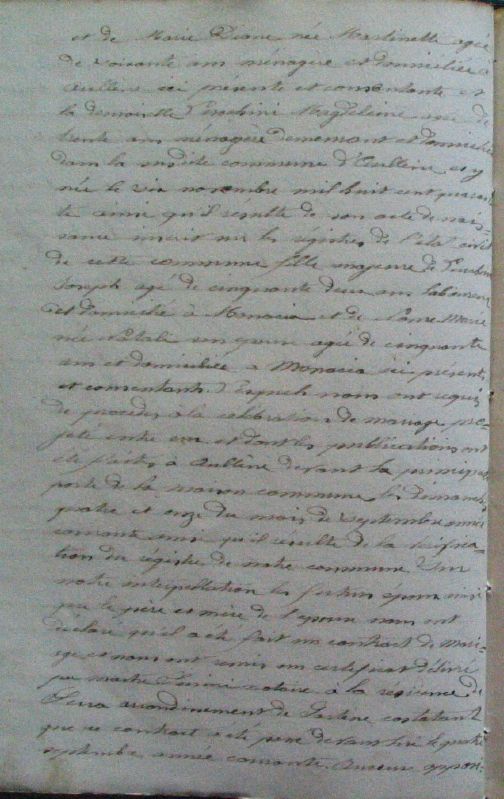 et de Marie Diane née Martinette agée
de soixante ans ménagere et domiciliée a
aullene ici présente et consentante et
la demoiselle Magdeleine agée de
trente ans ménagere demeurant et domiciliée
dans la susdite commune d'Aullene et y
née le six novembre mil huit cent quaran
te ainsi qu'il résulte de son acte de nais-
sance inscrit sur les régistres de l'état civil
de cette commune fille majeure de
Joseph agé de cinquante deux ans laboureur
et domicilié à Monacia et de Marie
née Natali agée de cinquante
ans et domiciliée a Monacia ici présents
et consentants. Lesquels nous ont requis
de procéder à la célébration de mariage pro-
jeté entre eux et dont les publications ont
été faites à Aullène devant la principale
porte de la maison commune les dimanches
quatre et onze du mois de septembre année
courante ainsi qu'il résulte de la vérifica-
tion du régistre de notre commune Sur
notre interpellation les futurs époux ainsi
que le père et mère de l'epouse nous ont
déclaré qu'il a été fait un contract de mari-
age et nous ont remis un certificat délivré
par maitre notaire à la résidence de
Serra arrondissement de Sartène constatant
que ce contract a été passé devant lui le quatre
septembre année courante. Aucune oppo-